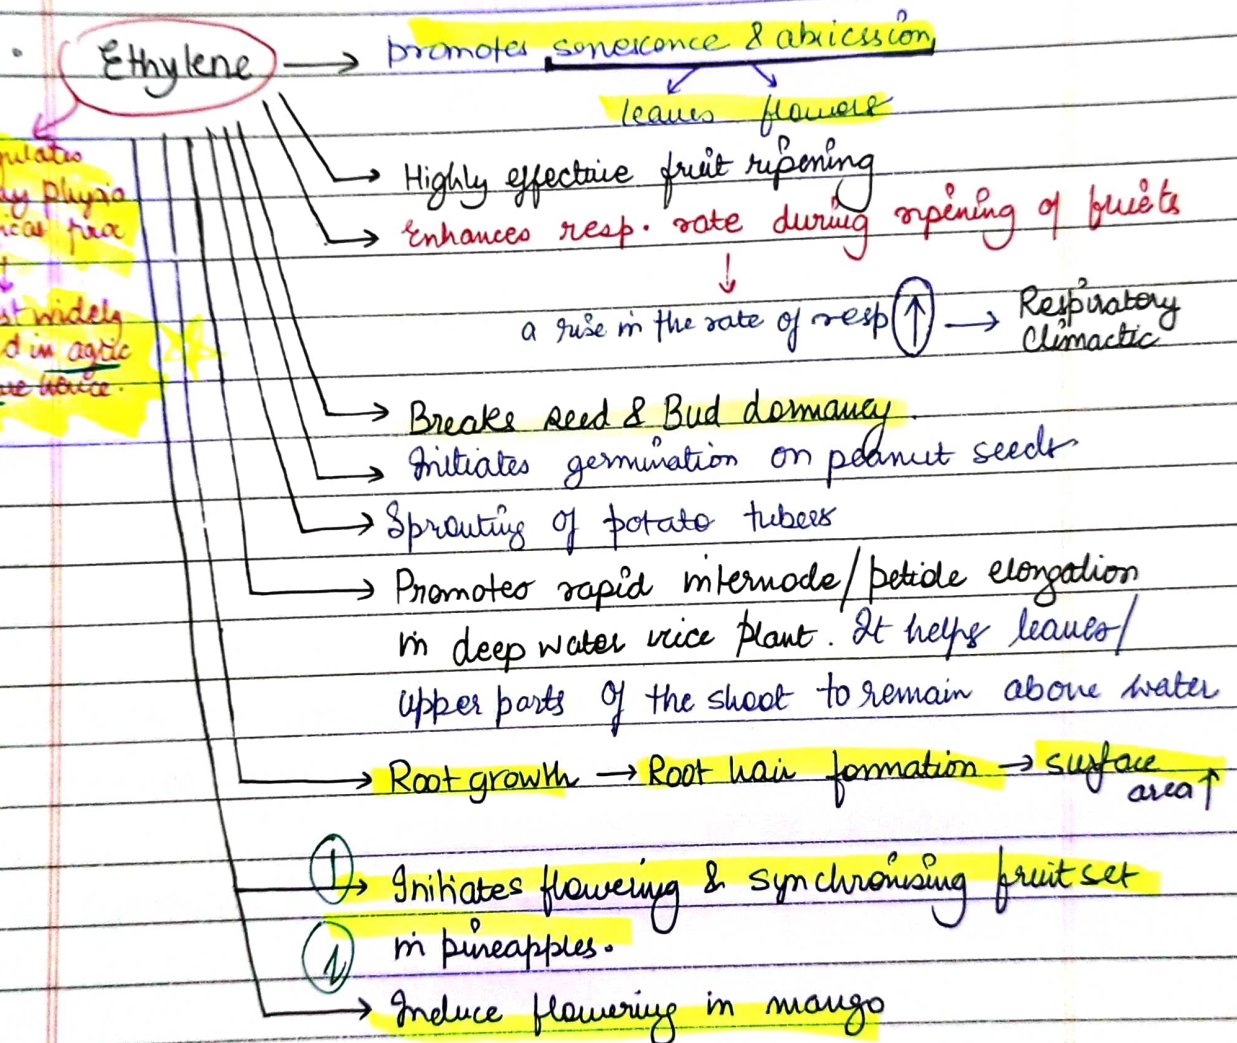 Ethylene → promotes senescence & abscission
leaves flowers
Highly effective fruit ripening
Enhances resp. rate during ripening of fruits
a rise in the rate of resp ↑ → Respiratory
Climactic
Breaks seed & Bud dormancy.
Initiates germination on peanut seeds
Sprouting of potato tubers
Promotes rapid internode/petiole elongation
in deep water rice plant. It helps leaves/
upper parts of the shoot to remain above water
Root growth → Root hair formation → surface
area ↑
① Initiates flowering & synchronising fruit set
in pineapples.
Induce flowering in mango
gulates
physio
st widely
d in agric